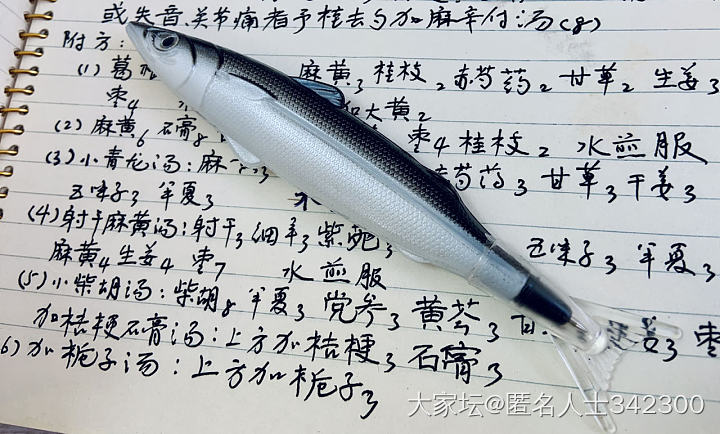 或失音.关节痛者予桂去芍加麻辛付汤(8)
附方:
(1)葛 麻黄3 桂枝2 赤芍药2 甘草2 生姜3
枣4 大黄2
(2)麻黄6 石膏8 枣4 桂枝2 水煎服
(3)小青龙汤:麻 3 芍药3 甘草3 干姜3
五味子3 半夏3
(4)射干麻黄汤:射干3 细辛3 紫菀3 五味子3 半夏3
麻黄4 生姜4 枣7 水煎服
(5)小柴胡汤:柴胡8 半夏3 党参3 黄芩3 甘 姜3 枣
加桔梗石膏汤:上方加桔梗3 石膏3
6)加栀子汤:上方加栀子3
大家坛@匿名人士342300